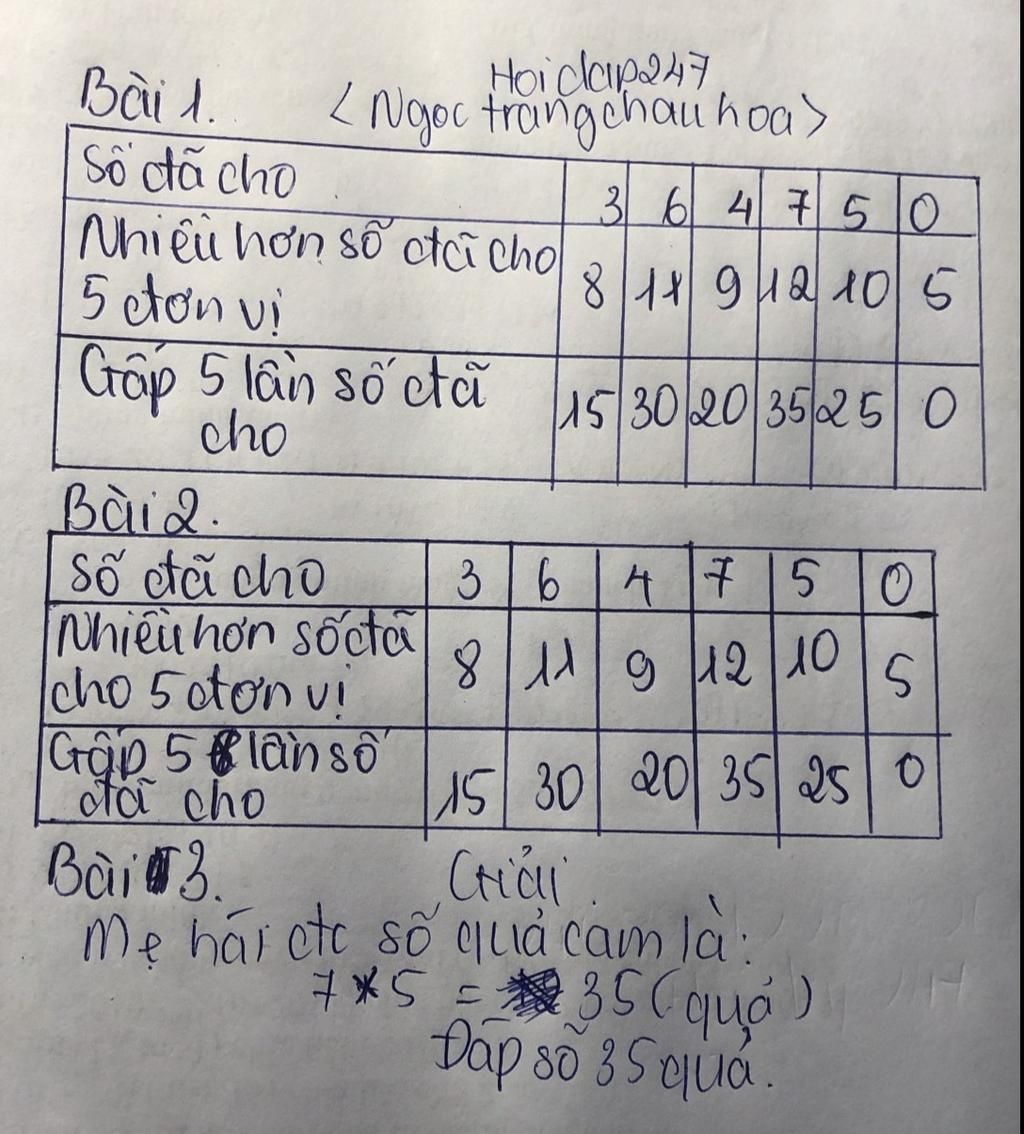 Hoidap247
Bài 1. <Ngoc trangchauhoa>
Số đã cho 3 6 4 7 5 0
Nhiều hơn số đã cho
5 đơn vị 8 11 9 12 10 5
Gấp 5 lần số đã
cho 15 30 20 35 25 0
Bài 2.
Số đã cho 3 6 4 7 5 0
Nhiều hơn số đã
cho 5 đơn vị 8 11 9 12 10 5
Gấp 5 lần số
đã cho 15 30 20 35 25 0
Bài 3. Giải.
Mẹ hái đc số quả cam là:
7 * 5 = 35 (quả)
Đáp số 35 quả.